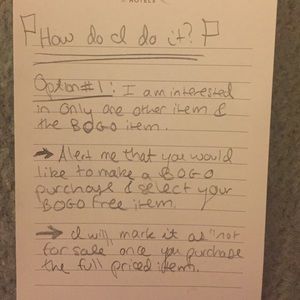 HOTELS
How do I do it?
Option #1: I am interested
in only one other item &
the BOGO item.
→ Alert me that you would
like to make a BOGO
purchase & select your
BOGO free item.
→ I will mark it as "not
for sale" once you purchase
the full priced item.